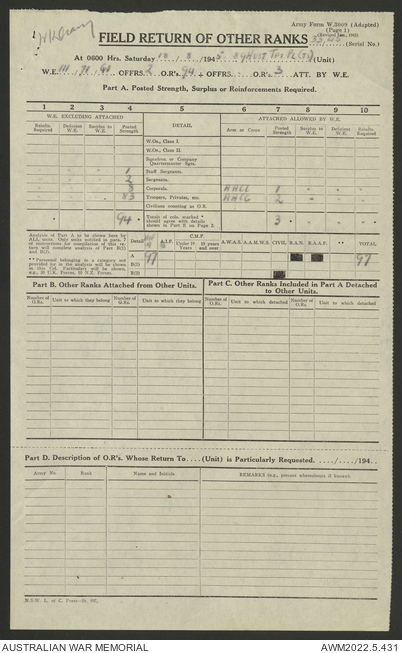 Army Form W.3009 (Adapted)
(Page 1)
FIELD RETURN OF OTHER RANKS
(Serial No.)
At 0600 Hrs. Saturday 18 / 8 / 1945. (Unit)
W.E. OFFRS. 2 O.R's. 94 + OFFRS. O.R's. 3 ATT. BY W.E.
Part A. Posted Strength, Surplus or Reinforcements Required.
1 2 3 4 5 6 7 8 9 10
W.E. EXCLUDING ATTACHED DETAIL ATTACHED ALLOWED BY W.E.
Reinfts. Required Deficient W.E. Surplus to W.E. Posted Strength Arm or Corps Posted Strength Surplus to W.E. Deficient W.E. Reinfts. Required
W.Os., Class I.
W.Os., Class II.
Squadron or Company Quartermaster Sgts.
1 Staff Sergeants.
2 Sergeants.
8 Corporals. 1
83 Troopers, Privates, etc. 2
Civilians counting as O.R.
94 Totals of cols. marked * should agree with details shown in Part E. on Page 2. 3
Analysis of Part A to be shown here by
ALL units. Only units notified in para. 7
of instructions for compilation of this re-
turn will complete analysis of Part B(1)
and B(2).
Detail A.I.F. C.M.F. Under 19 Years 19 years and over A.W.A.S. A.A.M.W.S. CIVIL R.A.N. R.A.A.F. ** TOTAL
A 97 97
** Personnel belonging to a category not
provided for in the analysis will be shown
in this Col. Particulars will be shown,
e.g., 20 U.K. Forces, 10 N.Z. Forces.
B(1)
B(2)
Part B. Other Ranks Attached from Other Units.
Part C. Other Ranks Included in Part A Detached
to Other Units.
Number of O.Rs. Unit to which they belong Number of O.Rs. Unit to which they belong Number of O.Rs. Unit to which detached Number of O.Rs. Unit to which detached
Part D. Description of O.R's. Whose Return To....(Unit) is Particularly Requested. ...../...../194..
Army No. Rank Name and Initials REMARKS (e.g., present whereabouts if known).
AUSTRALIAN WAR MEMORIAL
AWM2022.5.431